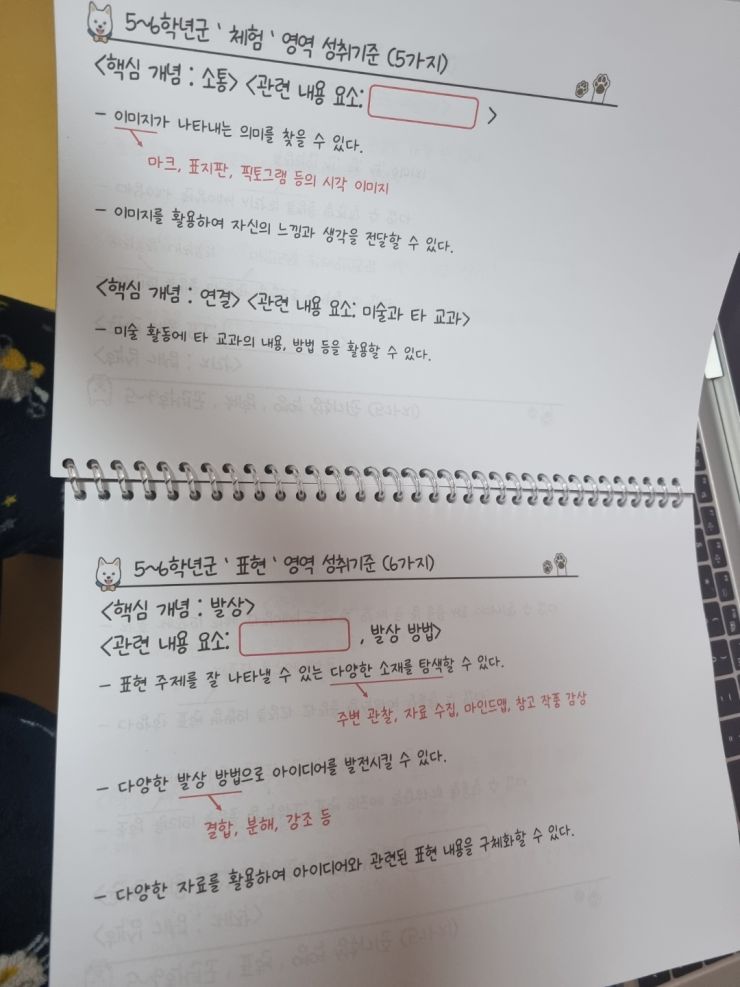 5~6학년군 ' 체험 ' 영역 성취기준 (5가지)
<핵심 개념 : 소통> <관련 내용 요소: >
- 이미지가 나타내는 의미를 찾을 수 있다.
마크, 표지판, 픽토그램 등의 시각 이미지
- 이미지를 활용하여 자신의 느낌과 생각을 전달할 수 있다.
<핵심 개념 : 연결> <관련 내용 요소: 미술과 타 교과>
- 미술 활동에 타 교과의 내용, 방법 등을 활용할 수 있다.
5~6학년군 ' 표현 ' 영역 성취기준 (6가지)
<핵심 개념 : 발상>
<관련 내용 요소: , 발상 방법>
- 표현 주제를 잘 나타낼 수 있는 다양한 소재를 탐색할 수 있다.
주변 관찰, 자료 수집, 마인드맵, 참고 작품 감상
- 다양한 발상 방법으로 아이디어를 발전시킬 수 있다.
결합, 분해, 강조 등
- 다양한 자료를 활용하여 아이디어와 관련된 표현 내용을 구체화할 수 있다.